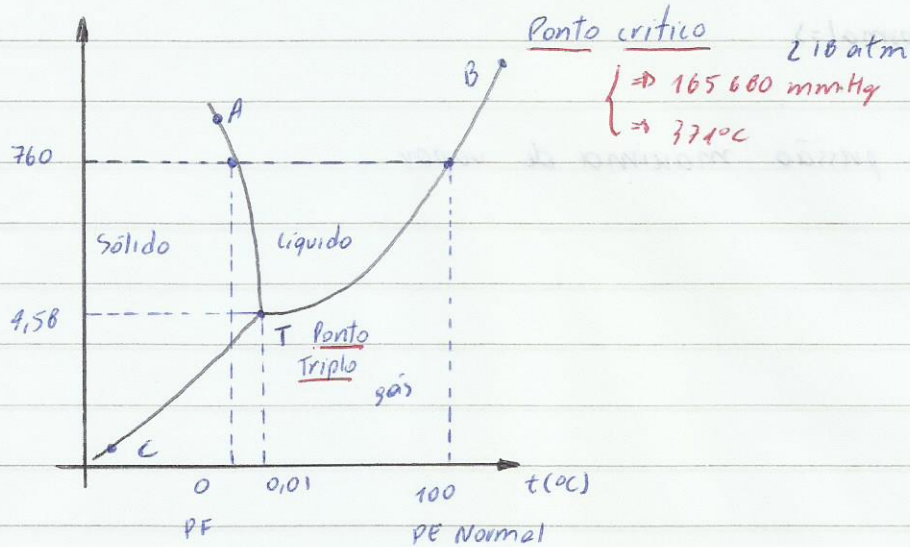 Ponto crítico
218 atm
B
⇒ 165 680 mmHg
⇒ 371°C
A
760
Sólido
Líquido
4,58
T Ponto
Triplo
gás
C
0
0,01
100
t(°C)
PF
PE Normal